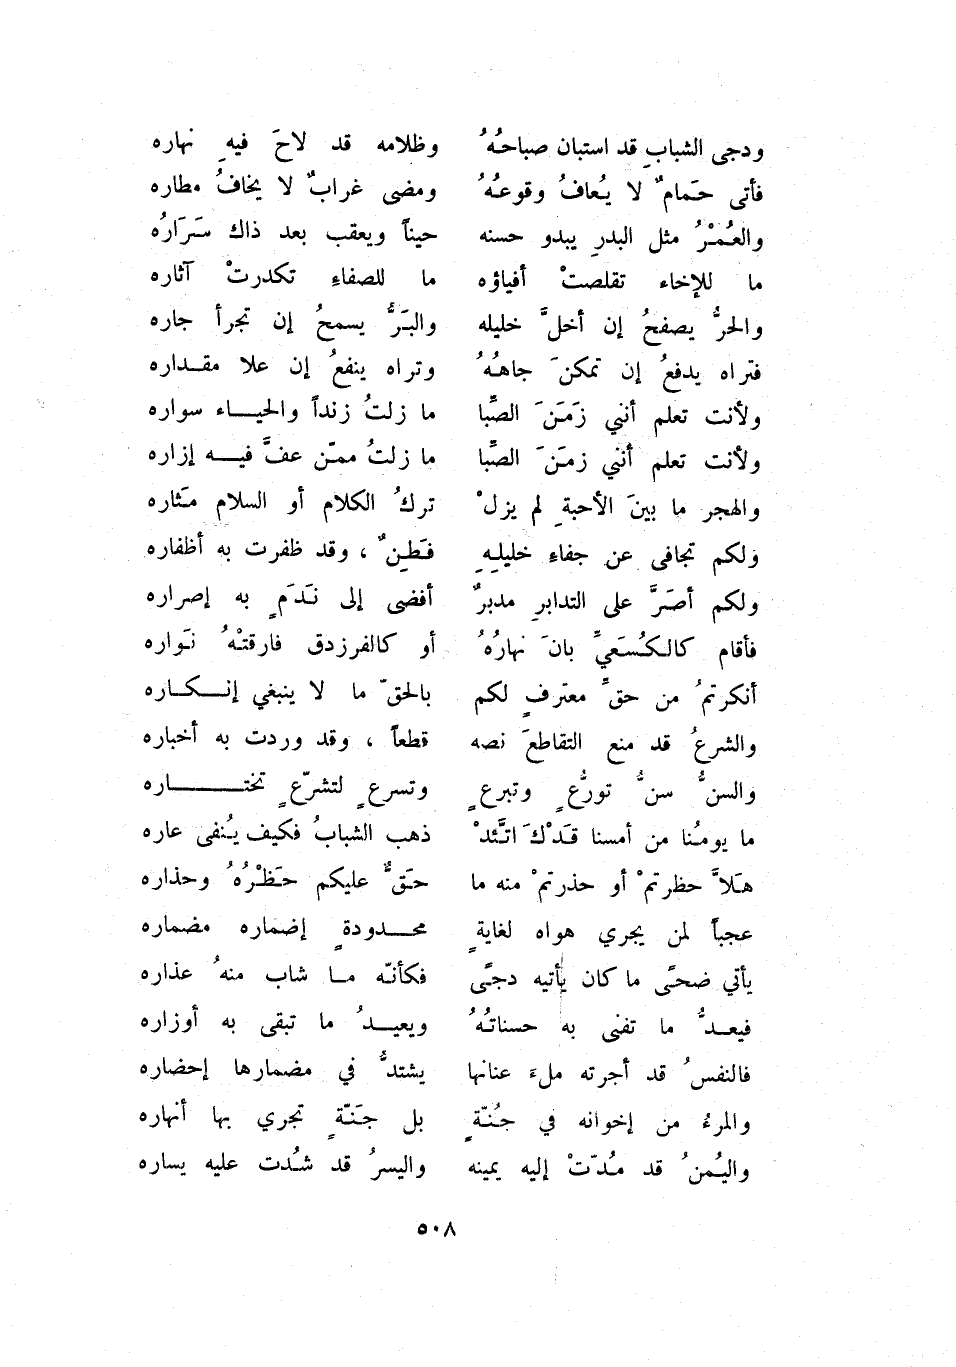 ودجى الشبابِ قد استبان صباحُهُ وظلامه قد لاحَ فيهِ نهاره
فأتى حَمامٌ لا يُعافُ وقوعُهُ ومضى غرابٌ لا يخافُ مطاره
والعُمْرُ مثل البدرِ يبدو حسنه حيناً ويعقب بعد ذاك سَرَارُه
ما للإخاء تقلصتْ أفياؤه ما للصفاءِ تكدرتْ آثاره
والحرُّ يصفحُ إن أخلَّ خليله والبَرُّ يسمحُ إن تجرأ جاره
فتراه يدفعُ إن تمكنَ جاهُهُ وتراه ينفعُ إن علا مقداره
ولأنت تعلم أنني زَمَنَ الصِّبا ما زلتُ زنداً والحياء سواره
ولأنت تعلم أنني زمَنَ الصِّبا ما زلتُ ممّن عفَّ فيه إزاره
والهجر ما بينَ الأحبةِ لم يزلْ تركُ الكلام أو السلام مَثاره
ولكم تجافى عن جفاءِ خليلِهِ فَطِنٌ ، وقد ظفرت به أظفاره
ولكم أصَرَّ على التدابرِ مدبرٌ أفضى إلى نَدَمٍ به إصراره
فأقام كالكُسَعيِّ بانَ نهارُهُ أو كالفرزدق فارقتْهُ نَواره
أنكرتمُ من حقِّ معترفٍ لكم بالحقّ ما لا ينبغي إنكاره
والشرعُ قد منع التقاطعَ نصه قطعاً ، وقد وردت به أخباره
والسنُّ سنُّ تورُّعٍ وتبرعٍ وتسرعٍ لتشرّعٍ تختاره
ما يومُنا من أمسنا قَدْكَ اتَّئدْ ذهب الشبابُ فكيف يُنفى عاره
هَلاَّ حظرتمْ أو حذرتمْ منه ما حَقٌّ عليكم حَظْرُهُ وحذاره
عجباً لمن يجري هواه لغايةٍ محدودةٍ إضماره مضماره
يأتي ضحىً ما كان يأتيه دجىً فكأنّه ما شاب منهُ عذاره
فيعدُّ ما تفنى به حسناتُهُ ويعيدُ ما تبقى به أوزاره
فالنفسُ قد أجرته ملءَ عنانها يشتدُّ في مضمارها إحضاره
والمرءُ من إخوانه في جُنّةٍ بل جَنّةٍ تجري بها أنهاره
واليُمنُ قد مُدّتْ إليه يمينه واليسرُ قد شُدت عليه يساره
٥٠٨